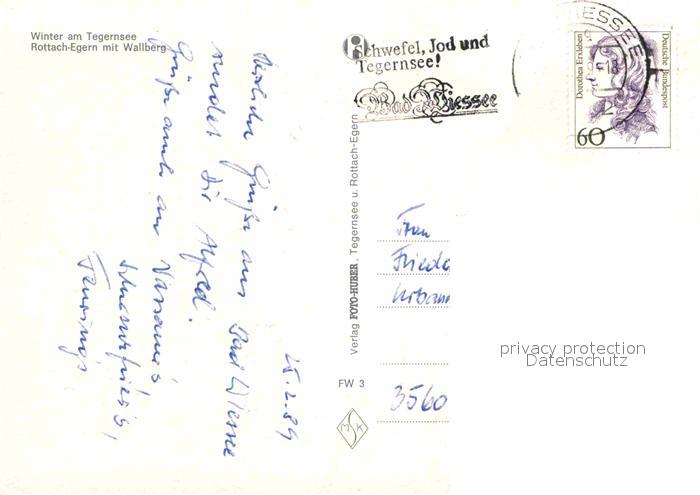 Winter am Tegernsee
Rottach-Egern mit Wallberg
25.2.89
Herzliche Grüße aus Bad Wiessee
sendet Dir Alfred.
Grüße auch an
Schwefel, Jod und
Tegernsee!
Bad Wiessee
WIESSEE
Dorothea Erxleben
Deutsche Bundespost
60
Verlag FOTO-HUBER, Tegernsee u. Rottach-Egern
FW 3
MSK
Frau
Frieda
Urban
3560
privacy protection
Datenschutz